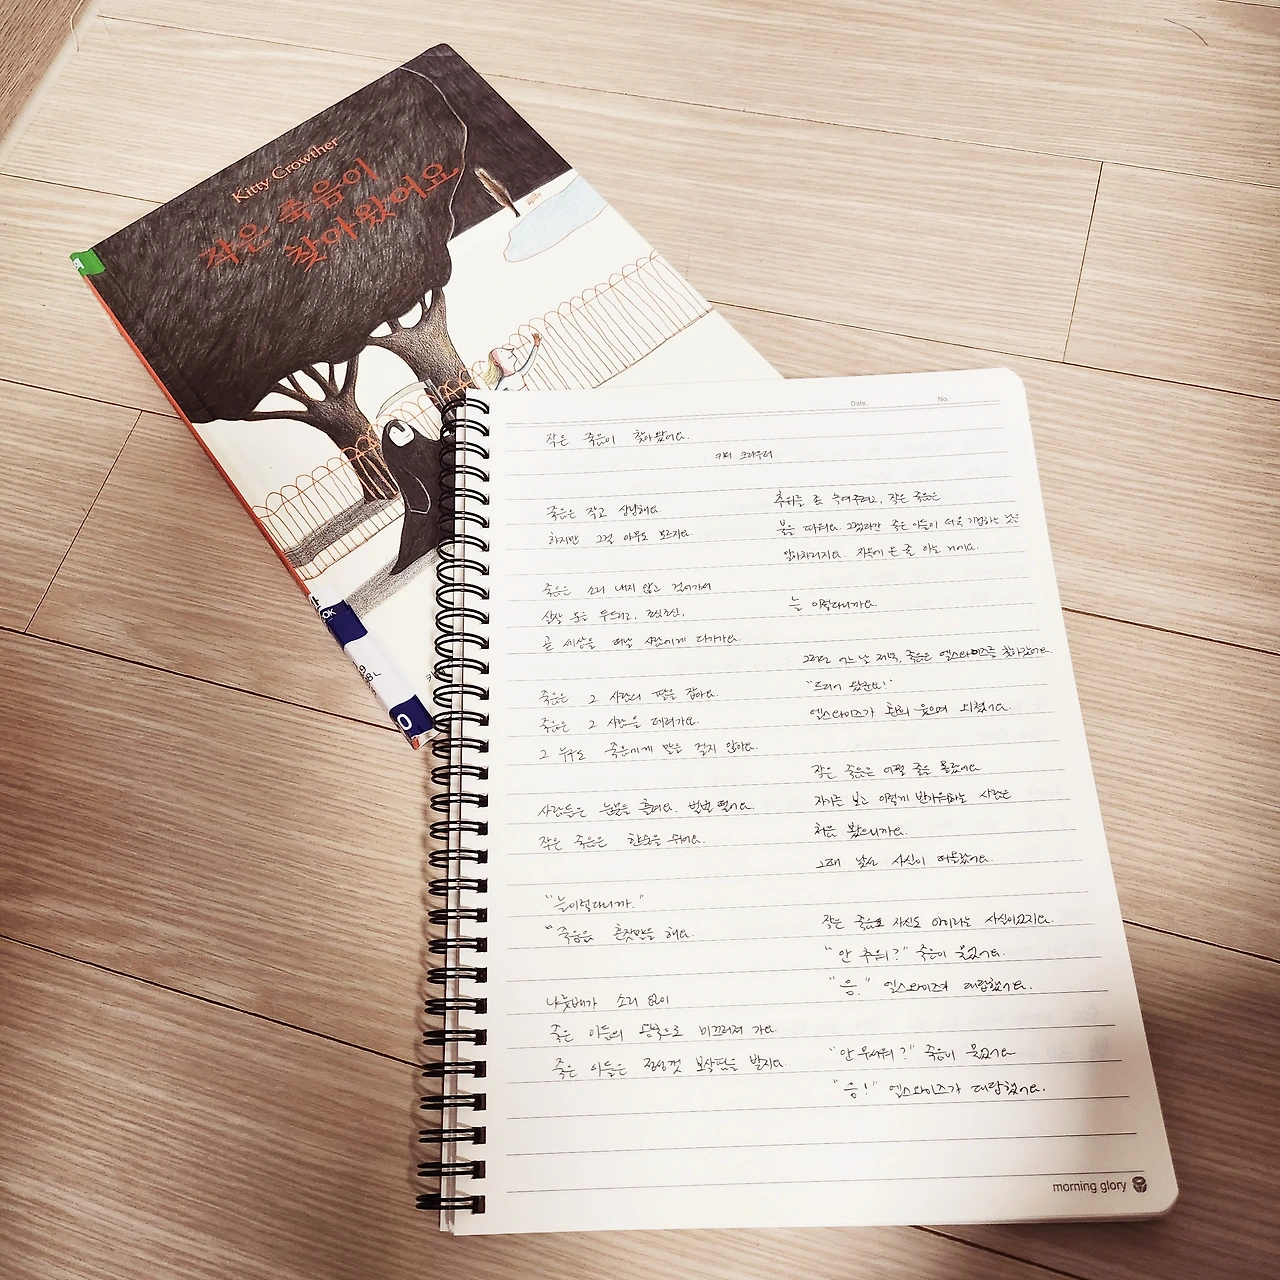 Kitty Crowther
작은 죽음이
찾아왔어요
Date.
No.
작은 죽음이 찾아왔어요.
키티 크라우더
죽음은 작고 상냥해요
하지만 그걸 아무도 모르지요.
죽음은 소리 내지 않고 걸어가서
살살 문을 두드리고, 조심조심,
곧 세상을 떠날 사람에게 다가가요.
죽음은 그 사람의 팔을 잡아요.
죽음은 그 사람을 데려가요.
그 누구도 죽음에게 말을 걸지 않아요.
사람들은 눈물을 흘려요. 벌벌 떨기도.
작은 죽음은 한숨을 쉬어요.
"늘 이렇다니까."
"죽음은 혼잣말을 해요.
나룻배가 소리 없이
죽은 이들의 왕국으로 미끄러져 가요.
죽은 이들은 정성껏 보살핌을 받지요.
추위를 좀 녹여주려고, 작은 죽음은
불을 따워요. 그렇지만 죽은 이들이 더욱 기겁하는
알아차리지요. 지옥에 온 줄 아는 거예요.
늘 이렇다니까요.
그러던 어느 날 저녁, 죽음은 엘스와이즈를 찾아갔어요.
"드디어 왔군요!"
엘스와이즈가 환히 웃으며 외쳤어요.
작은 죽음은 어쩔 줄을 몰랐어요
자기를 보고 이렇게 반가워하는 사람은
처음 봤으니까요.
그때 낯선 사신이 떠올랐어요.
작은 죽음은 자신도 아이라는 사실이었지요.
"안 추워?" 죽음이 물었어요.
"응." 엘스와이즈가 대답했어요.
"안 무서워?" 죽음이 물었어요
"응!" 엘스와이즈가 대답했어요.
morning glory